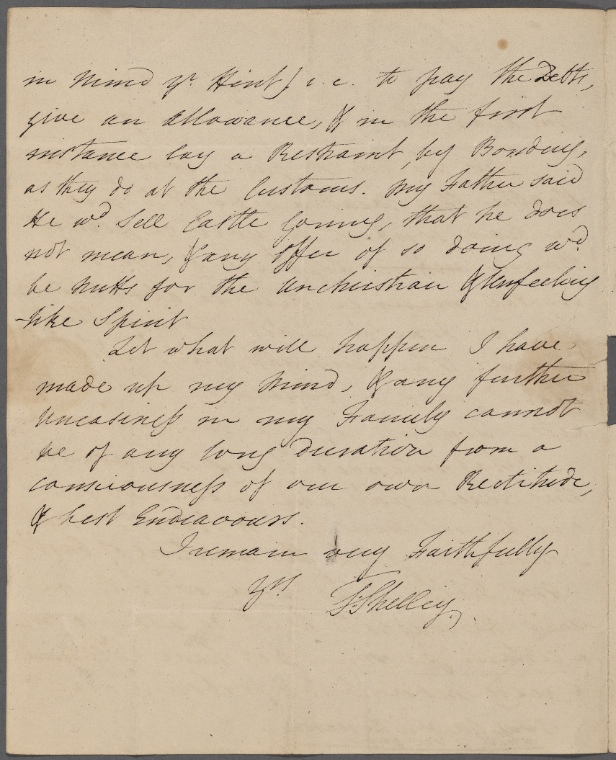 in Mind yr. Hint) i.e. to pay the Debts,
give an allowance, & in the first
instance lay a Restraint by Bonding,
as they do at the Customs. My Father said
He wd. sell Castle Goring, that he does
not mean, & any offer of so doing wd.
be Nutts for the Unchristian & Unfeeling
-like Spirit
Let what will happen I have
made up my Mind, & any further
Uneasiness in my Family cannot
be of any long Duration from a
consciousness of our own Rectitude,
& best Endeavours.
I remain very Faithfully
Yrs T Shelley.